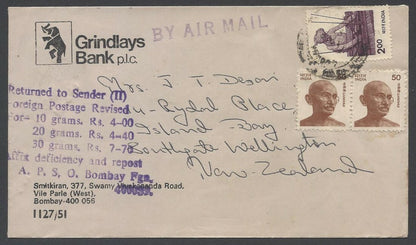 BY AIR MAIL
Grindlays
Bank p.l.c.
2.00
INDIA
50
INDIA
Mrs. J. T. Desai
Rydal Place
Island Bay
Southgate Wellington
New Zealand
Returned to Sender (II)
Foreign Postage Revised
For— 10 grams. Rs. 4—00
20 grams. Rs. 4—40
30 grams. Rs. 7—70
Affix deficiency and repost
A. P. S. O. Bombay Fgn.
400099.
Smitkiran, 377, Swamy Vivekananda Road,
Vile Parle (West).
Bombay-400 056
1127/51